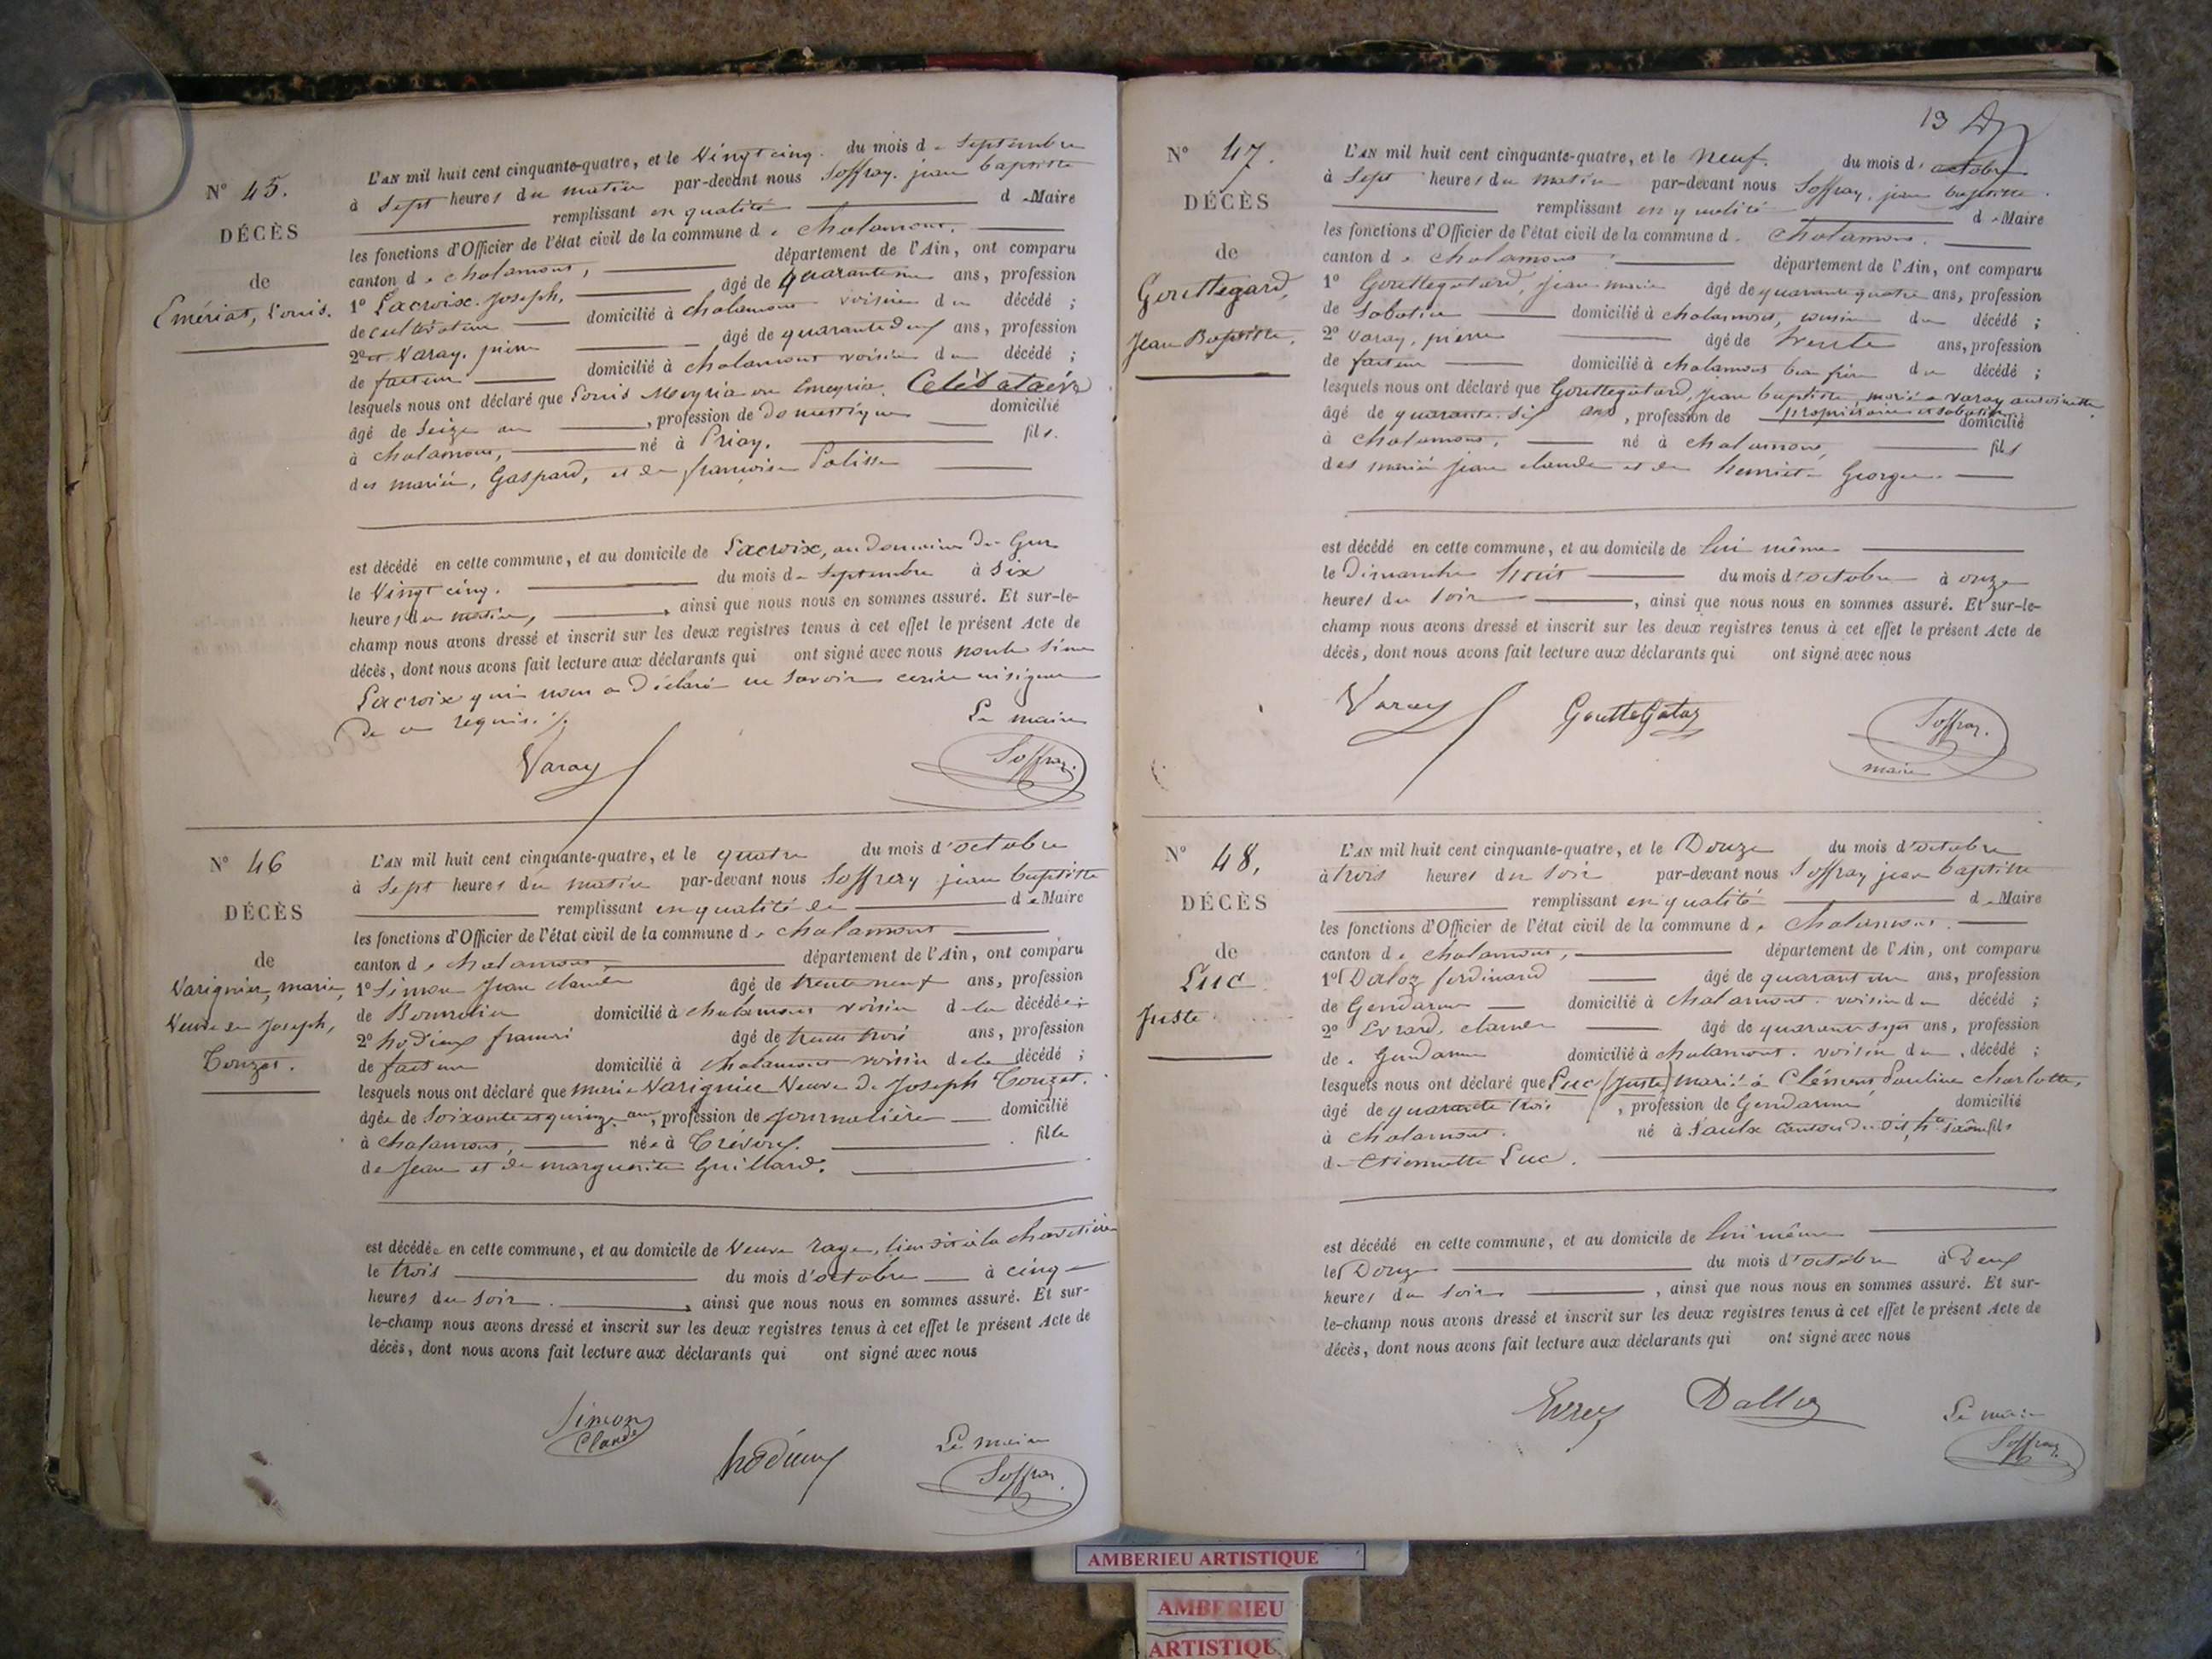 N° 45.
DÉCÈS
de
Emériat, Louis.
L'AN mil huit cent cinquante-quatre, et le Vingt cinq du mois de Septembre
à Sept heures du matin par-devant nous Soffray jean baptiste
remplissant en qualité de Maire
les fonctions d'Officier de l'état civil de la commune de chalamont.
canton de chalamont, département de l'Ain, ont comparu
1° Lacroix Joseph, âgé de ans, profession
de cultivateur domicilié à chalamont voisin du décédé ;
2° Varay, pierre âgé de quarante deux ans, profession
de facteur domicilié à chalamont voisin du décédé ;
lesquels nous ont déclaré que Louis Meyria ou Emeyria. Celebataire
âgé de Seize an, profession de domestique domicilié
à chalamont, né à Priay. fils
des mariés, Gaspard, et de françoise Polisse
est décédé en cette commune, et au domicile de Lacroix, au domaine du
le Vingt cinq. du mois de Septembre à Six
heures du matin, ainsi que nous nous en sommes assuré. Et sur-le-
champ nous avons dressé et inscrit sur les deux registres tenus à cet effet le présent Acte de
décès, dont nous avons fait lecture aux déclarants qui ont signé avec nous
Lacroix qui nous a déclaré ne savoir écrire ni signer
De ce requis.
Le maire
Varay
Soffray.
N° 46
DÉCÈS
de
Varignier, marie,
Veuve de Joseph,
Touzet.
L'AN mil huit cent cinquante-quatre, et le quatre du mois d'octobre
à Sept heures du matin par-devant nous Soffrey jean baptiste
remplissant en qualité de de Maire
les fonctions d'Officier de l'état civil de la commune de chalamont
canton de chalamont, département de l'Ain, ont comparu
1° Simon Jean claude âgé de trente neuf ans, profession
de Bourrelier domicilié à chalamont voisin de la décédée ;
2° hodieux francois âgé de trente trois ans, profession
de facteur domicilié à chalamont voisin de la décédé ;
lesquels nous ont déclaré que marie Varignier Veuve de Joseph Touzet.
âgée de Soixante et quinze an, profession de journalière domicilié
à chalamont, née à Trévoux. fille
de Jean et de marguerite Guillard.
est décédée en cette commune, et au domicile de Veuve rage, lieu dit à la
le trois du mois d'octobre à cinq
heures du soir. ainsi que nous nous en sommes assuré. Et sur-
le-champ nous avons dressé et inscrit sur les deux registres tenus à cet effet le présent Acte de
décès, dont nous avons fait lecture aux déclarants qui ont signé avec nous
Simon
Claude
hodieux
Le maire
Soffray.
13
N° 47.
DÉCÈS
de
Gouttegard,
Jean Baptiste.
L'AN mil huit cent cinquante-quatre, et le neuf. du mois d'octobre
à Sept heures du matin par-devant nous Soffray, jean baptiste.
remplissant en qualité de Maire
les fonctions d'Officier de l'état civil de la commune de chalamont.
canton de chalamont département de l'Ain, ont comparu
1° Gouttegatard, jean marie âgé de quarante quatre ans, profession
de Sabotier domicilié à chalamont, cousin du décédé ;
2° Varay, pierre âgé de trente ans, profession
de facteur domicilié à chalamont beau frère du décédé ;
lesquels nous ont déclaré que Gouttegatard, jean baptiste marié a varay antoinette
propriétaire et sabotier
âgé de quarante six ans, profession de domicilié
à chalamont, né à chalamont, fils
des mariés jean claude et de henriet George.
est décédé en cette commune, et au domicile de lui même
le Dimanche huit du mois d'octobre à onze
heures du soir, ainsi que nous nous en sommes assuré. Et sur-le-
champ nous avons dressé et inscrit sur les deux registres tenus à cet effet le présent Acte de
décès, dont nous avons fait lecture aux déclarants qui ont signé avec nous
Varay
GoutteGatar
Soffray.
maire
N° 48.
DÉCÈS
de
Luc
Juste
L'AN mil huit cent cinquante-quatre, et le Douze du mois d'octobre
à trois heures du soir par-devant nous Soffray jean baptiste
remplissant en qualité de Maire
les fonctions d'Officier de l'état civil de la commune de chalamont.
canton de chalamont, département de l'Ain, ont comparu
1° Daloz ferdinand âgé de quarant un ans, profession
de Gendarme domicilié à chalamont. voisin du décédé ;
2° Evrard, claude âgé de quarante sept ans, profession
de Gendarme domicilié à chalamont. voisin du décédé ;
lesquels nous ont déclaré que Luc (Juste) marié à Clément Pauline charlotte,
âgé de quarante trois, profession de Gendarme domicilié
à chalamont. né à Saulx canton du dit, hte Saône fils
de Etiennette Luc.
est décédé en cette commune, et au domicile de lui même
le Douze du mois d'octobre à Deux
heures du soir, ainsi que nous nous en sommes assuré. Et sur-
le-champ nous avons dressé et inscrit sur les deux registres tenus à cet effet le présent Acte de
décès, dont nous avons fait lecture aux déclarants qui ont signé avec nous
Dalloz
Le maire
Soffray.
AMBERIEU ARTISTIQUE
AMBERIEU
ARTISTIQUE